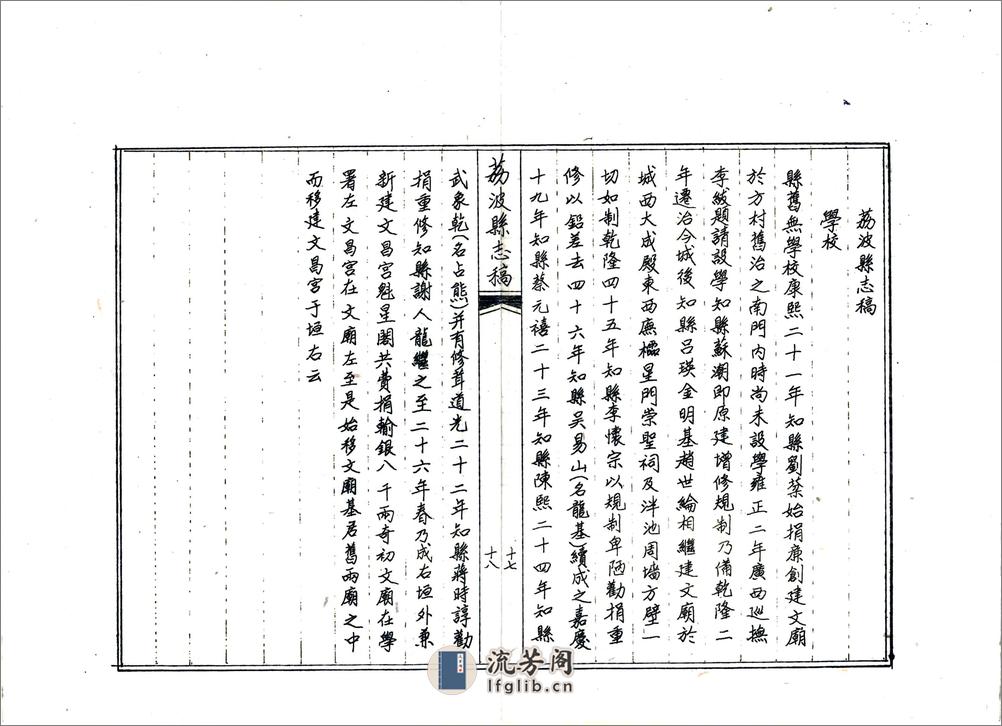 荔波縣志稿
學校
縣舊無學校康熙二十一年知縣劉棻始捐廉創建文廟
於方村舊治之南門內時尚未設學雍正二年廣西巡撫
李紱題請設學知縣蘇潮即原建增修規制乃備乾隆二
年遷治今城後知縣呂瑛金明基趙世綸相繼建文廟於
城西大成殿東西廡櫺星門崇聖祠及泮池周墙方壁一
切如制乾隆四十五年知縣李懷宗以規制卑陋勸捐重
修以鉛差去四十六年知縣吴易山(名龍基)續成之嘉慶
十九年知縣蔡元禧二十三年知縣陳熙二十四年知縣
荔波縣志稿
十七
十八
武象乾(名占熊)并有修葺道光二十二年知縣蔣時諄勸
捐重修知縣謝人龍繼之至二十六年春乃成右垣外兼
新建文昌宫魁星閣共費捐輸銀八千两奇初文廟在學
署左文昌宫在文廟左至是始移文廟基居舊兩廟之中
而移建文昌宫于垣右云
流芳阁
lfglib.cn